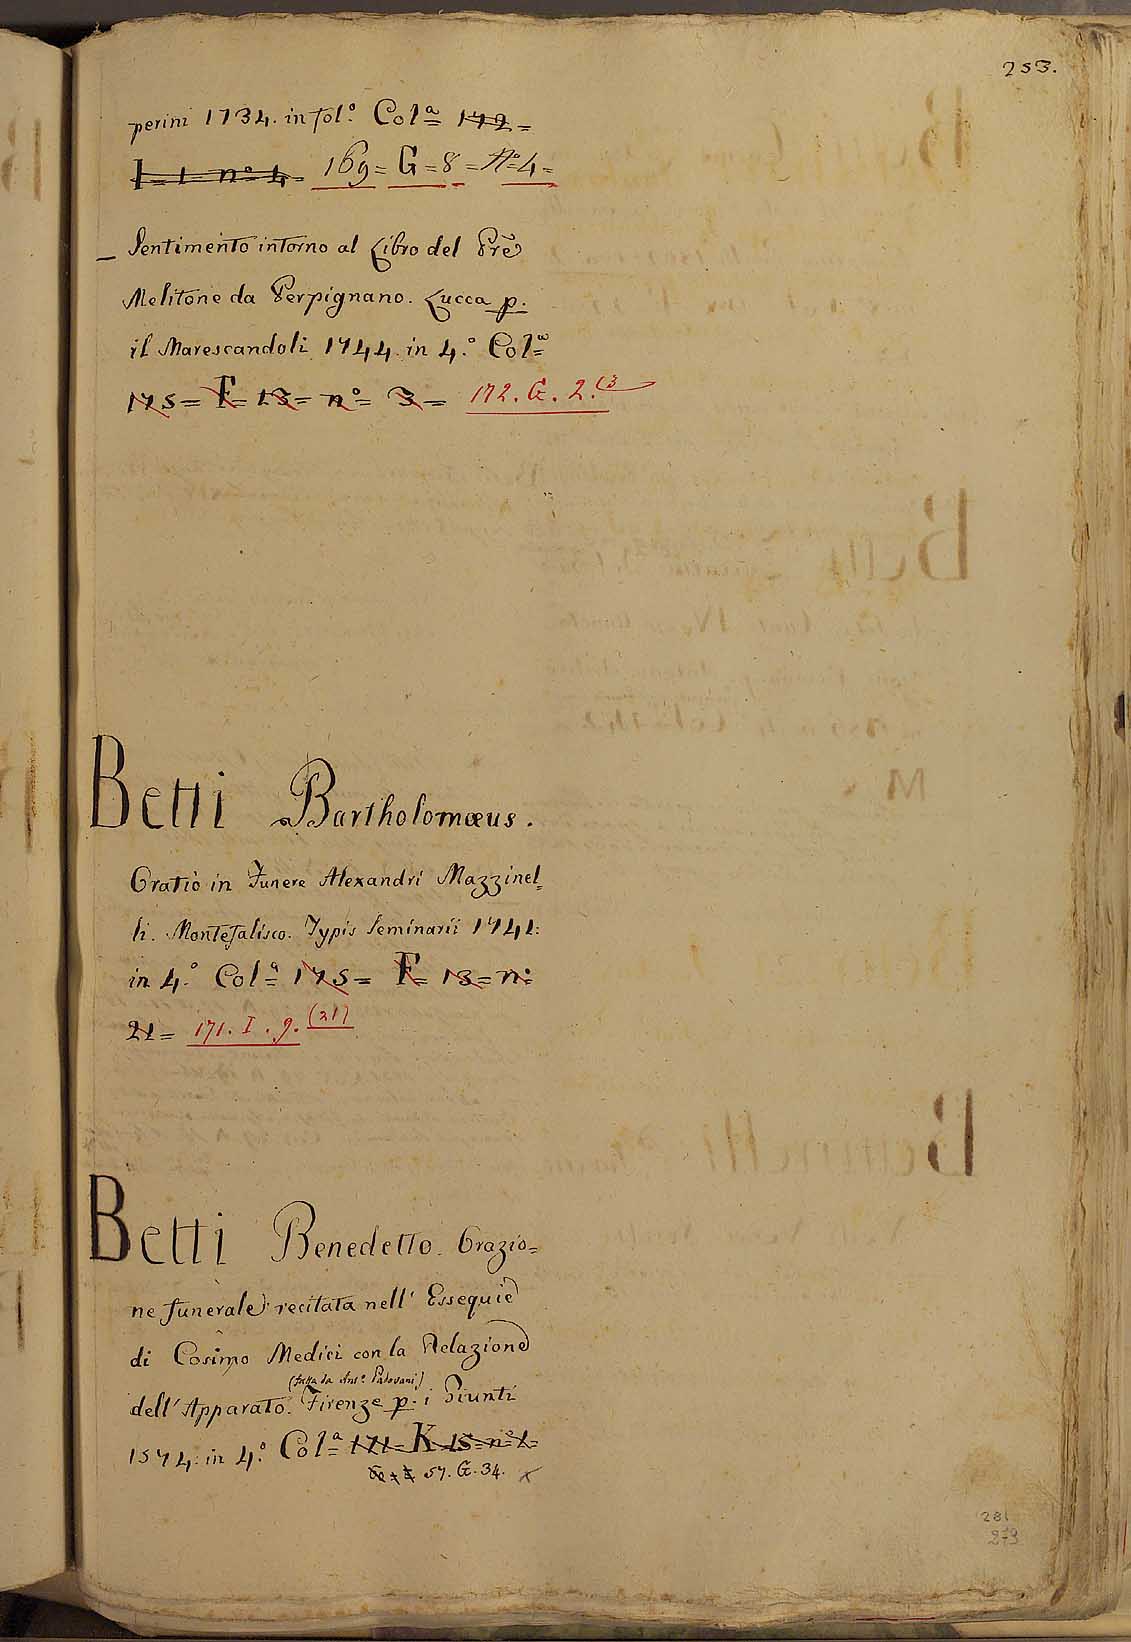 253.
perini 1734. in fol.º Col.ª 172=
I=1=nº=4= 169=G=8=Nº=4=
_ Sentimento intorno al Libro del Prẽ
Melitone da Perpignano. Lucca p.
il Marescandoli 1744. in 4.º Col.ª
175= F= 13= nº= 3= 172. G. 2.(3
Betti Bartholomæus.
Oratio in Funere Alexandri Mazzinel=
li. Montefalisco. Typis Seminarii 1741:
in 4.º Col.ª 175= F= 13= n:
21= 171. I. 9. (21)
Betti Benedetto. Orazio=
ne funerale recitata nell' Essequie
di Cosimo Medici con la Relazione
(fatta da Ant.º Padovani)
dell' Apparato. Firenze p. i Giunti
1574: in 4.º Col.ª 171= K 15= nº 1=
57. G. 34.
281
273